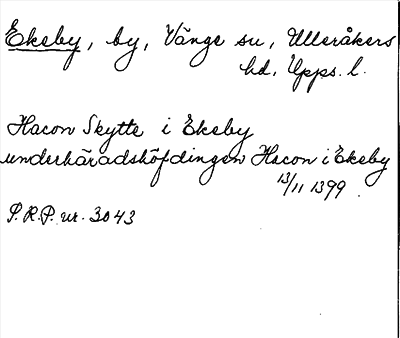 Ekeby, by, Vänge sn, Ulleråkers
hd, Upps. l.
Hacon Skytte i Ekeby
underhäradshöfdingen Hacon i Ekeby
13/11 1399.
P.R.P. nr. 3043